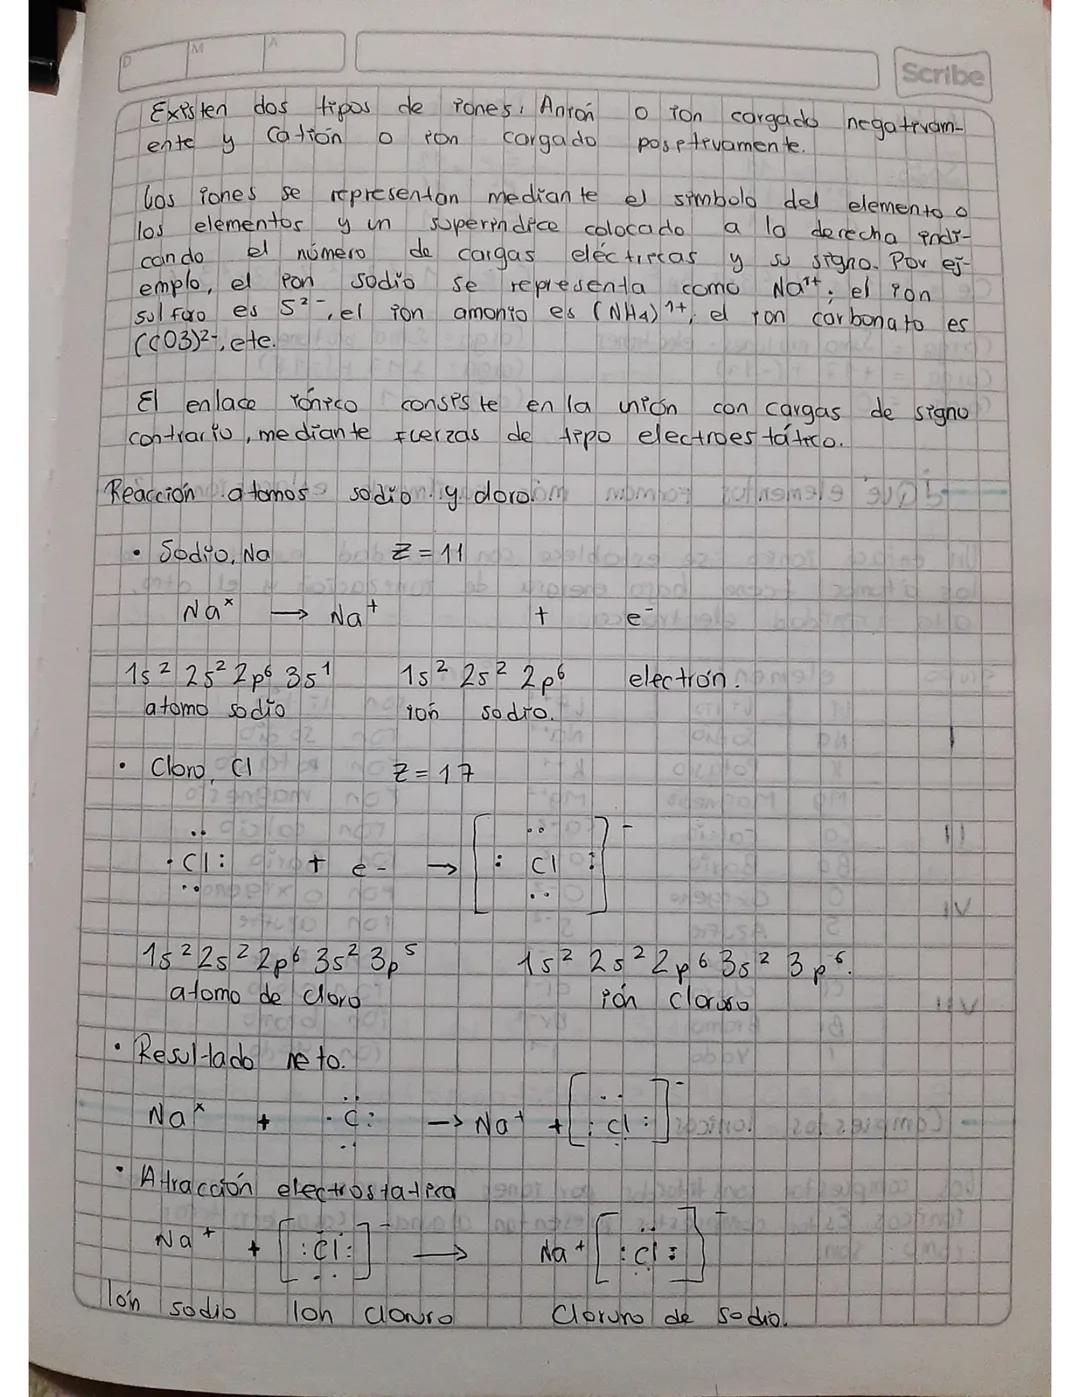 D M A
Scribe
Existen dos tipos de iones, Anión o ion cargado negativam-
ente y Catión o ion cargado positivamente.
Los iones se representan mediante el simbolo del elemento o
los elementos y un superindice colocado a la derecha indi-
cando el número de cargas eléctricas y su signo. Por ej-
emplo, el ion sodio se representa como Na¹⁺, el ion
sulfuro es S²⁻, el ion amonio es (NH4)¹⁺, el ion carbonato es
(CO3)²⁻, etc.
El enlace iónico consiste en la unión con cargas de signo
contrario, mediante fuerzas de tipo electroestático.
Reacción atomos sodio y cloro
• Sodio, Na Z = 11
Naˣ → Na⁺ + e⁻
1s² 2s² 2p⁶ 3s¹ 1s² 2s² 2p⁶ electrón.
atomo sodio ión sodio.
• Cloro, Cl Z = 17
·Cl: + e- → [:Cl:]⁻
1s² 2s² 2p⁶ 3s² 3p⁵ 1s² 2s² 2p⁶ 3s² 3p⁶.
atomo de cloro ión cloruro
• Resultado neto.
Naˣ + ·C: → Na⁺ + [:Cl:]⁻
• Atracción electrostatica
Na⁺ + [:Cl:]⁻ → Na⁺ [:Cl:]⁻
Ión sodio Ion cloruro Cloruro de sodio.